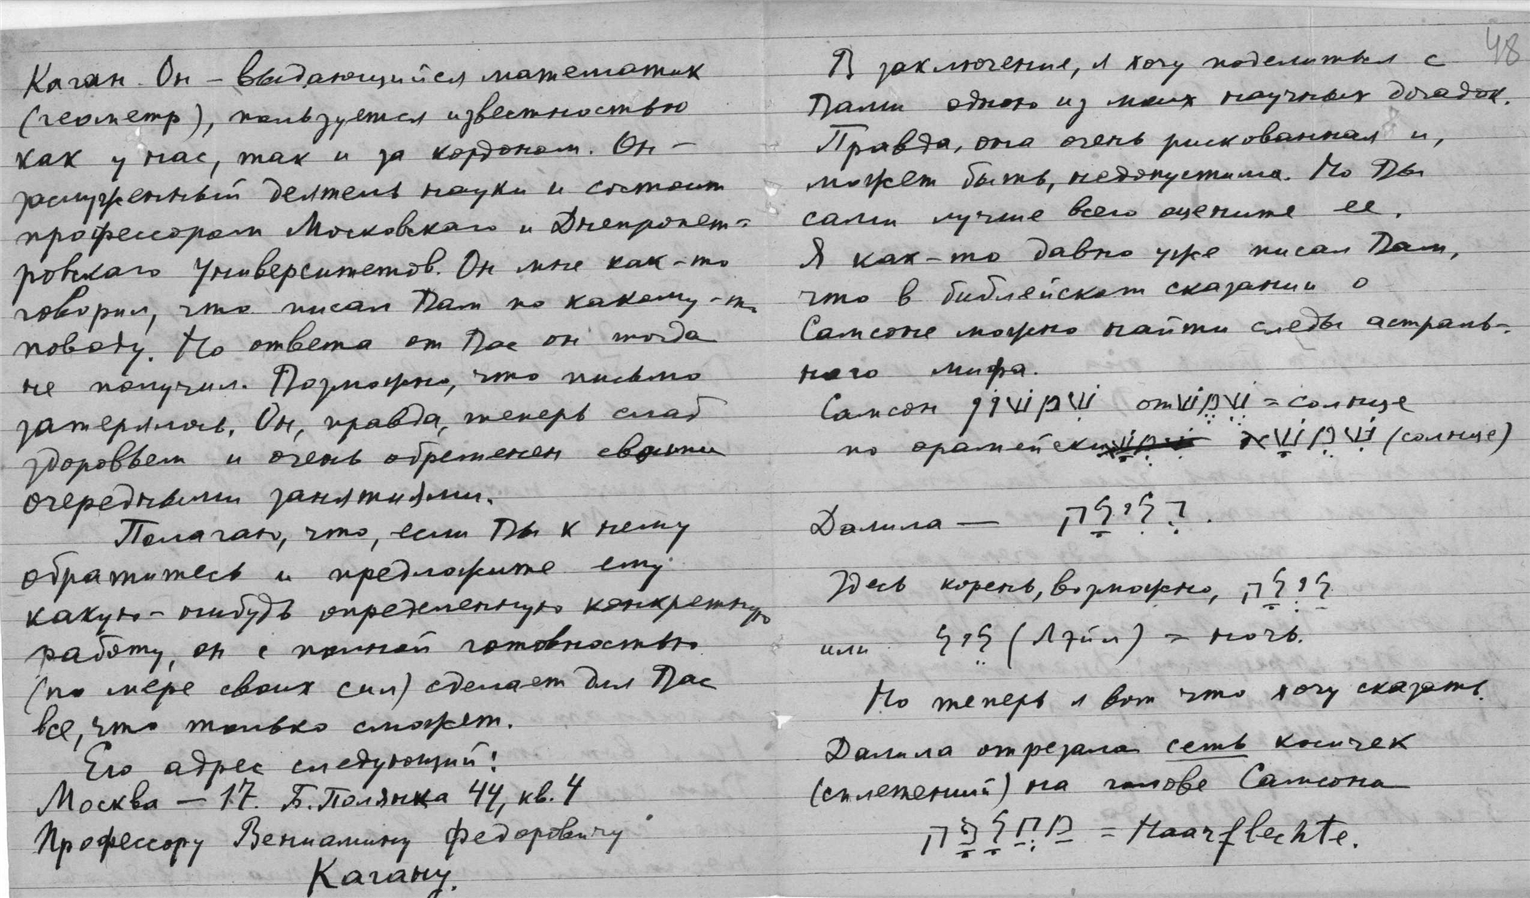 Каган. Он – выдающийся математик
(геометр), пользуется известностью
как у нас, так и за кордоном. Он –
заслуженный деятель науки и состоит
профессором Московского и Днепропет-
ровского Университетов. Он мне как-то
говорил, что писал Вам по какому-то
поводу. Но ответа от Вас он тогда
не получил. Возможно, что письмо
затерялось. Он, правда, теперь слаб
здоровьем и очень обременен своими
очередными занятиями.
Полагаю, что, если Вы к нему
обратитесь и предложите ему
какую-нибудь определенную конкретную
работу, он с полной готовностью
(по мере своих сил) сделает для Вас
все, что только сможет.
Его адрес следующий:
Москва – 17. Б. Полянка 44, кв. 4
Профессору Вениамину Федоровичу
Кагану.
48
В заключение, я хочу поделиться с
Вами одною из моих научных догадок.
Правда, она очень рискованная и,
может быть, недопустима. Но Вы
сами лучше всего оцените ее.
Я как-то давно уже писал Вам,
что в библейском сказании о
Самсоне можно найти следы астраль-
ного мифа.
Самсон שִׁמְשׁוֹן от שֶׁמֶשׁ = солнце
по арамейски שִׁמְשָׁא (солнце)
Далила — דְּלִילָה.
Здесь корень, возможно, לַיְלָה
или לֵיל (Лэйл) = ночь.
Но теперь я вот что хочу сказать.
Далила отрезала семь косичек
(сплетений) на голове Самсона
מַחְלָפָה = Haarflechte.